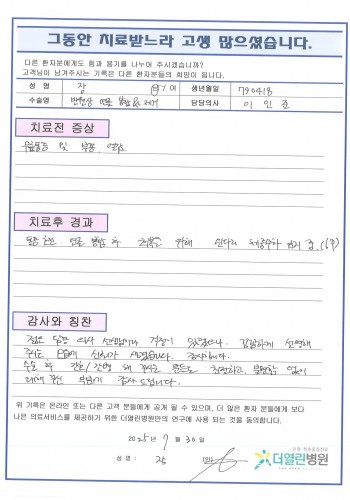 그동안 치료받느라 고생 많으셨습니다.
다른 환자분에게도 힘과 용기를 나누어 주시겠습니까?
고객님이 남겨주시는 기록은 다른 환자분들의 희망이 됩니다.
성 명 장 남 / 여 생년월일 790418
수술명 반월상 연골 봉합 & 제거 담당의사 이인준
치료전 증상
무릎통증 및 부종, 염증
치료후 경과
연골 봉합 후 회복을 위해
감사와 칭찬
젊은 담당 의사 선생님이라 걱정이 있었으나, 꼼꼼하게 설명해
주시는 모습에 신뢰가 생겼습니다. 감사합니다.
수술 후 간호/간병 해 주시는 분들도 친절하고, 불편함 없이
대해 주신 부분이 감사 드립니다.
위 기록은 온라인 또는 다른 고객 분들에게 공개 될 수 있으며, 더 많은 환자 분들에게 보다
나은 의료서비스를 제공하기 위한 더열린병원만의 연구에 사용 되는 것을 동의합니다.
2025년 7월 30일
성 명 : 장 (인)
더열린병원